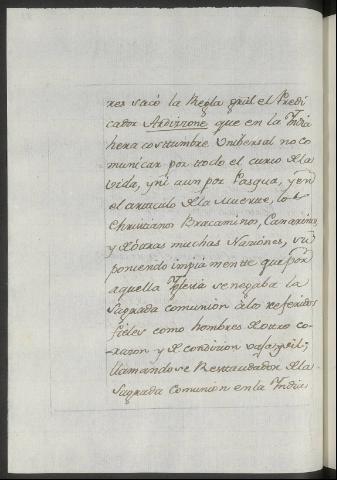 res sacó la Regla grãl el Predi
cador Ardizzone que en la India
hera costumbre Universal no co
municar por todo el curso dela
vida, y ni aun por Pasqua, y en
el articulo dela Muerte, los
Christianos Bracamino, Canarino,
y de otras muchas Naziones, su
poniendo impiamente que por
aquella Iglesia se negaba la
Sagrada comunion álos referidos
fieles como hombres de otro co-
razon y de condizion vaja y vil;
llamandose Restaurador dela
Sagrada Comunion en la India